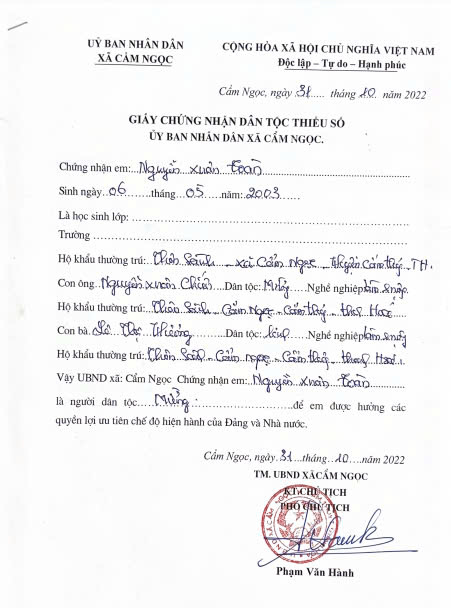 UỶ BAN NHÂN DÂN
XÃ CẨM NGỌC
CỘNG HÒA XÃ HỘI CHỦ NGHĨA VIỆT NAM
Độc lập – Tự do – Hạnh phúc
Cẩm Ngọc, ngày 31 tháng 10 năm 2022
GIẤY CHỨNG NHẬN DÂN TỘC THIỂU SỐ
ỦY BAN NHÂN DÂN XÃ CẨM NGỌC.
Chứng nhận em: Nguyễn Xuân Toàn
Sinh ngày 06 tháng 05 năm: 2003
Là học sinh lớp:
Trường
Hộ khẩu thường trú: Thôn - xã Cẩm Ngọc - Huyện Cẩm Thủy - TH.
Con ông: Nguyễn Xuân Chiến Dân tộc: Mường Nghề nghiệp
Hộ khẩu thường trú: Thôn - Cẩm Ngọc - Cẩm Thủy - Thanh Hoá
Con bà: Lê Thị Dân tộc: Kinh Nghề nghiệp
Hộ khẩu thường trú: Thôn - Cẩm Ngọc - Cẩm Thủy - Thanh Hoá.
Vậy UBND xã: Cẩm Ngọc Chứng nhận em: Nguyễn Xuân Toàn
là người dân tộc Mường để em được hưởng các
quyền lợi ưu tiên chế độ hiện hành của Đảng và Nhà nước.
Cẩm Ngọc, ngày 31 tháng 10 năm 2022
TM. UBND XÃ CẨM NGỌC
KT.CHỦ TỊCH
PHÓ CHỦ TỊCH
Phạm Văn Hành